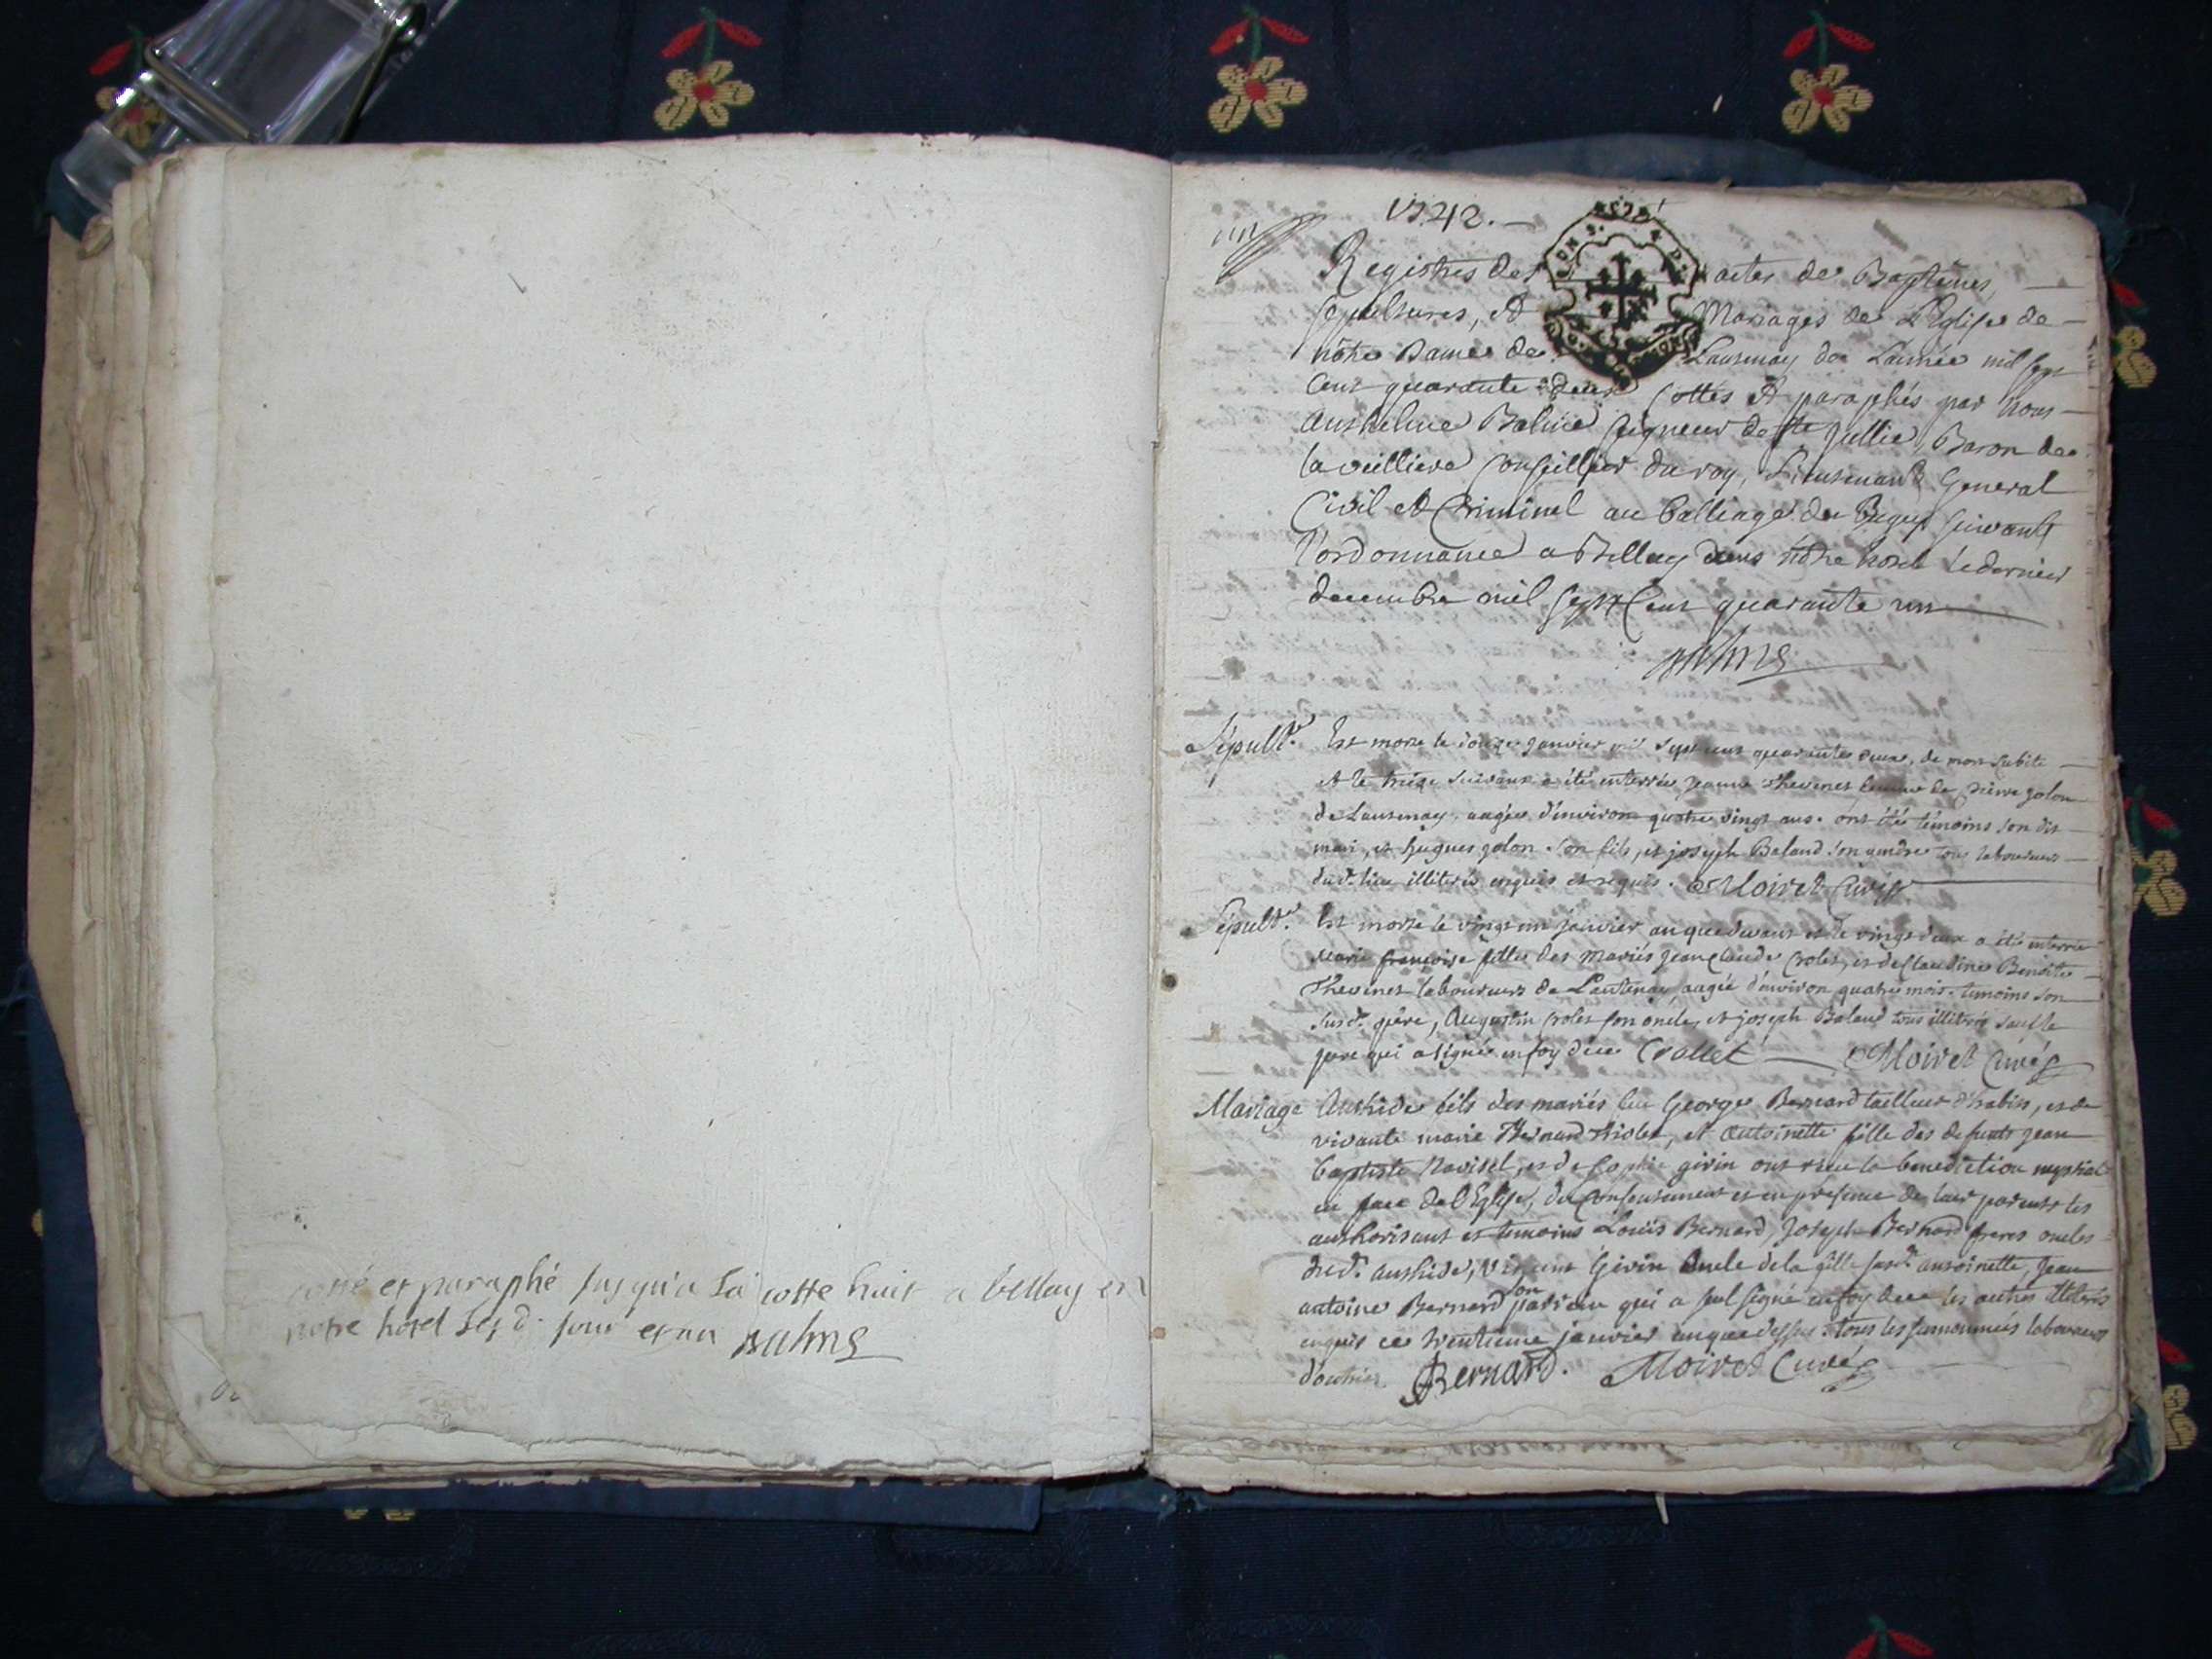 cotté et paraphé jusqu'a la cotte huit a bellay en
notre hotel lesd. jour et an Balme
1742.
un
Registres des actes de Baptêmes,
sepultures, et Mariages de L'Eglise de
nôtre Dame de Lantenay de L'année mil sept
Cent quarante deux Cottés et paraphés par nous
Anthelme Balme seigneur de Ste Jullie, Baron de
la veilliere Conseiller du roy, Lieutenant General
Civil et Criminel au Balliage du Bugey suivant
l'ordonnance a Bellay dans nôtre hotel le dernier
decembre mil sept Cent quarante un
Balme
Sépult.e Est morte le douze janvier mil sept cent quarante deux, de mort subite
et le treize suivant a été enterrée jeanne Thevenet femme de pierre golon
de Lantenay, aagée d'environ quatre vingt ans. ont étés témoins son dit
mari, et hugues golon son fils, et joseph Baland son gendre tous laboureurs
dud. lieu illiterés enquis et requis. Moiret Curé
Sépult.e Est morte le vingt un janvier an que devant et le vingt deux a été enterrée
Marie françoise fille des mariés jean claude Crolet, et de Claudine Benoite
Thevenet laboureurs de Lantenay aagée d'environ quatre mois. temoins son
susd. père, Augustin Crolet son oncle, et joseph Baland tous illiterés sauf le
pere qui a signé en foy dece Crollet Moiret Curé
Mariage Anthide fils des mariés feu George Bernard tailleur d'habits, et de
vivante marie Bernard , et Antoinette fille des defunts jean
baptiste Ravisel, et de Sophie girin ont reçu la benediction nuptiale
en face de l'Eglise, du Consentement et en présence de leur parents les
authorisant et temoins Louis Bernard, Joseph Bernard freres oncles
dud. anthide, Vincent Girin Oncle de la fille susd. antoinette, Jean
antoine Bernard son parrein qui a seul signé en foy dece les autres illiterés
enquis ce trentieme janvier an que dessus. tous les surnommés laboureurs
d'outriaz. Bernard. Moiret Curé